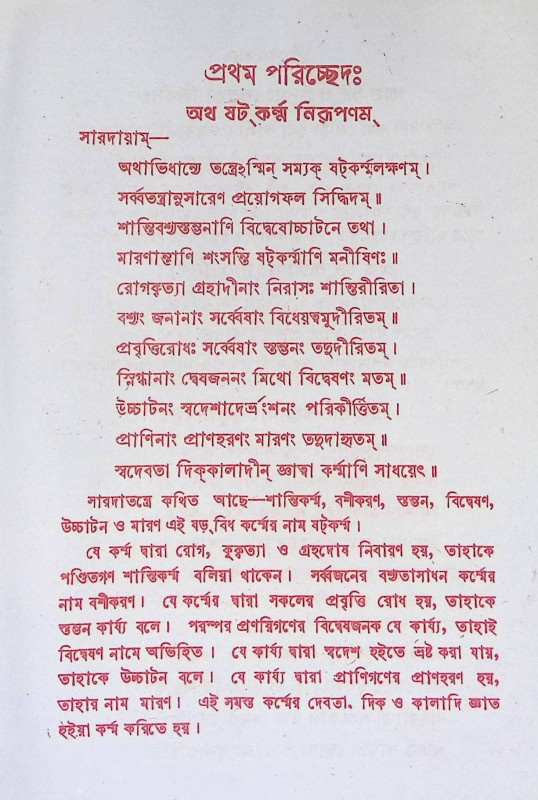 প্রথম পরিচ্ছেদঃ
অথ ষট্‌কর্ম্ম নিরূপণম্
সারদায়াম্—
অথাভিধাস্যে তন্ত্রেঽস্মিন্ সম্যক্ ষট্‌কর্ম্মলক্ষণম্।
সর্ব্বতন্ত্রানুসারেণ প্রয়োগফল সিদ্ধিদম্॥
শান্তিবশ্যস্তম্ভনাণি বিদ্বেষোচ্চাটনে তথা।
মারণান্তাণি শংসন্তি ষট্‌কর্ম্মাণি মনীষিণঃ॥
রোগকৃত্যা গ্রহাদীনাং নিরাসঃ শান্তিরীরিতা।
বশ্যং জনানাং সর্ব্বেষাং বিধেয়ত্বমুদীরিতম্॥
প্রবৃত্তিরোধঃ সর্ব্বেষাং স্তম্ভনং তদুদীরিতম্।
স্নিগ্ধানাং দ্বেষজননং মিথো বিদ্বেষণং মতম্॥
উচ্চাটনং স্বদেশাদের্ভ্রংশনং পরিকীর্ত্তিতম্।
প্রাণিনাং প্রাণহরণং মারণং তদুদাহৃতম্॥
স্বদেবতা দিক্‌কালাদীন্ জ্ঞাত্বা কর্ম্মাণি সাধয়েৎ॥
সারদাতন্ত্রে কথিত আছে—শান্তিকর্ম্ম, বশীকরণ, স্তম্ভন, বিদ্বেষণ,
উচ্চাটন ও মারণ এই ষড়্‌বিধ কর্ম্মের নাম ষট্‌কর্ম্ম।
যে কর্ম্ম দ্বারা রোগ, কুকৃত্যা ও গ্রহদোষ নিবারণ হয়, তাহাকে
পণ্ডিতগণ শান্তিকর্ম্ম বলিয়া থাকেন। সর্ব্বজনের বশ্যতাসাধন কর্ম্মের
নাম বশীকরণ। যে কর্ম্মের দ্বারা সকলের প্রবৃত্তি রোধ হয়, তাহাকে
স্তম্ভন কার্য্য বলে। পরস্পর প্রণয়িগণের বিদ্বেষজনক যে কার্য্য, তাহাই
বিদ্বেষণ নামে অভিহিত। যে কার্য্য দ্বারা স্বদেশ হইতে ভ্রষ্ট করা যায়,
তাহাকে উচ্চাটন বলে। যে কার্য্য দ্বারা প্রাণিগণের প্রাণহরণ হয়,
তাহার নাম মারণ। এই সমস্ত কর্ম্মের দেবতা, দিক্ ও কালাদি জ্ঞাত
হইয়া কর্ম্ম করিতে হয়।